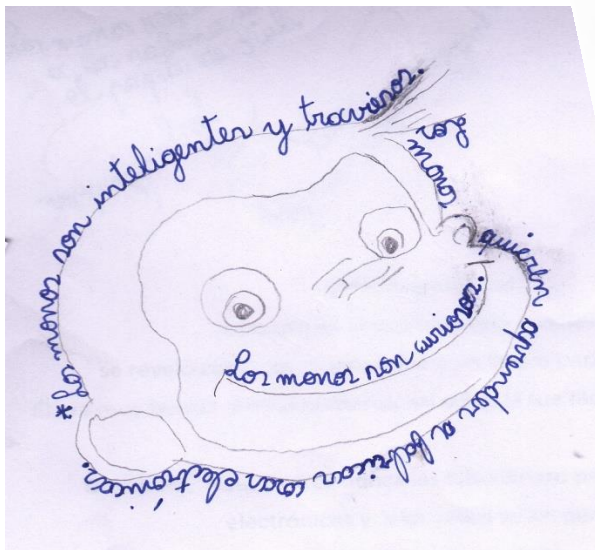 *Los monos son inteligentes y traviesos.
Los monos quieren aprender a fabricar cosas electrónicas.
Los monos son curiosos.